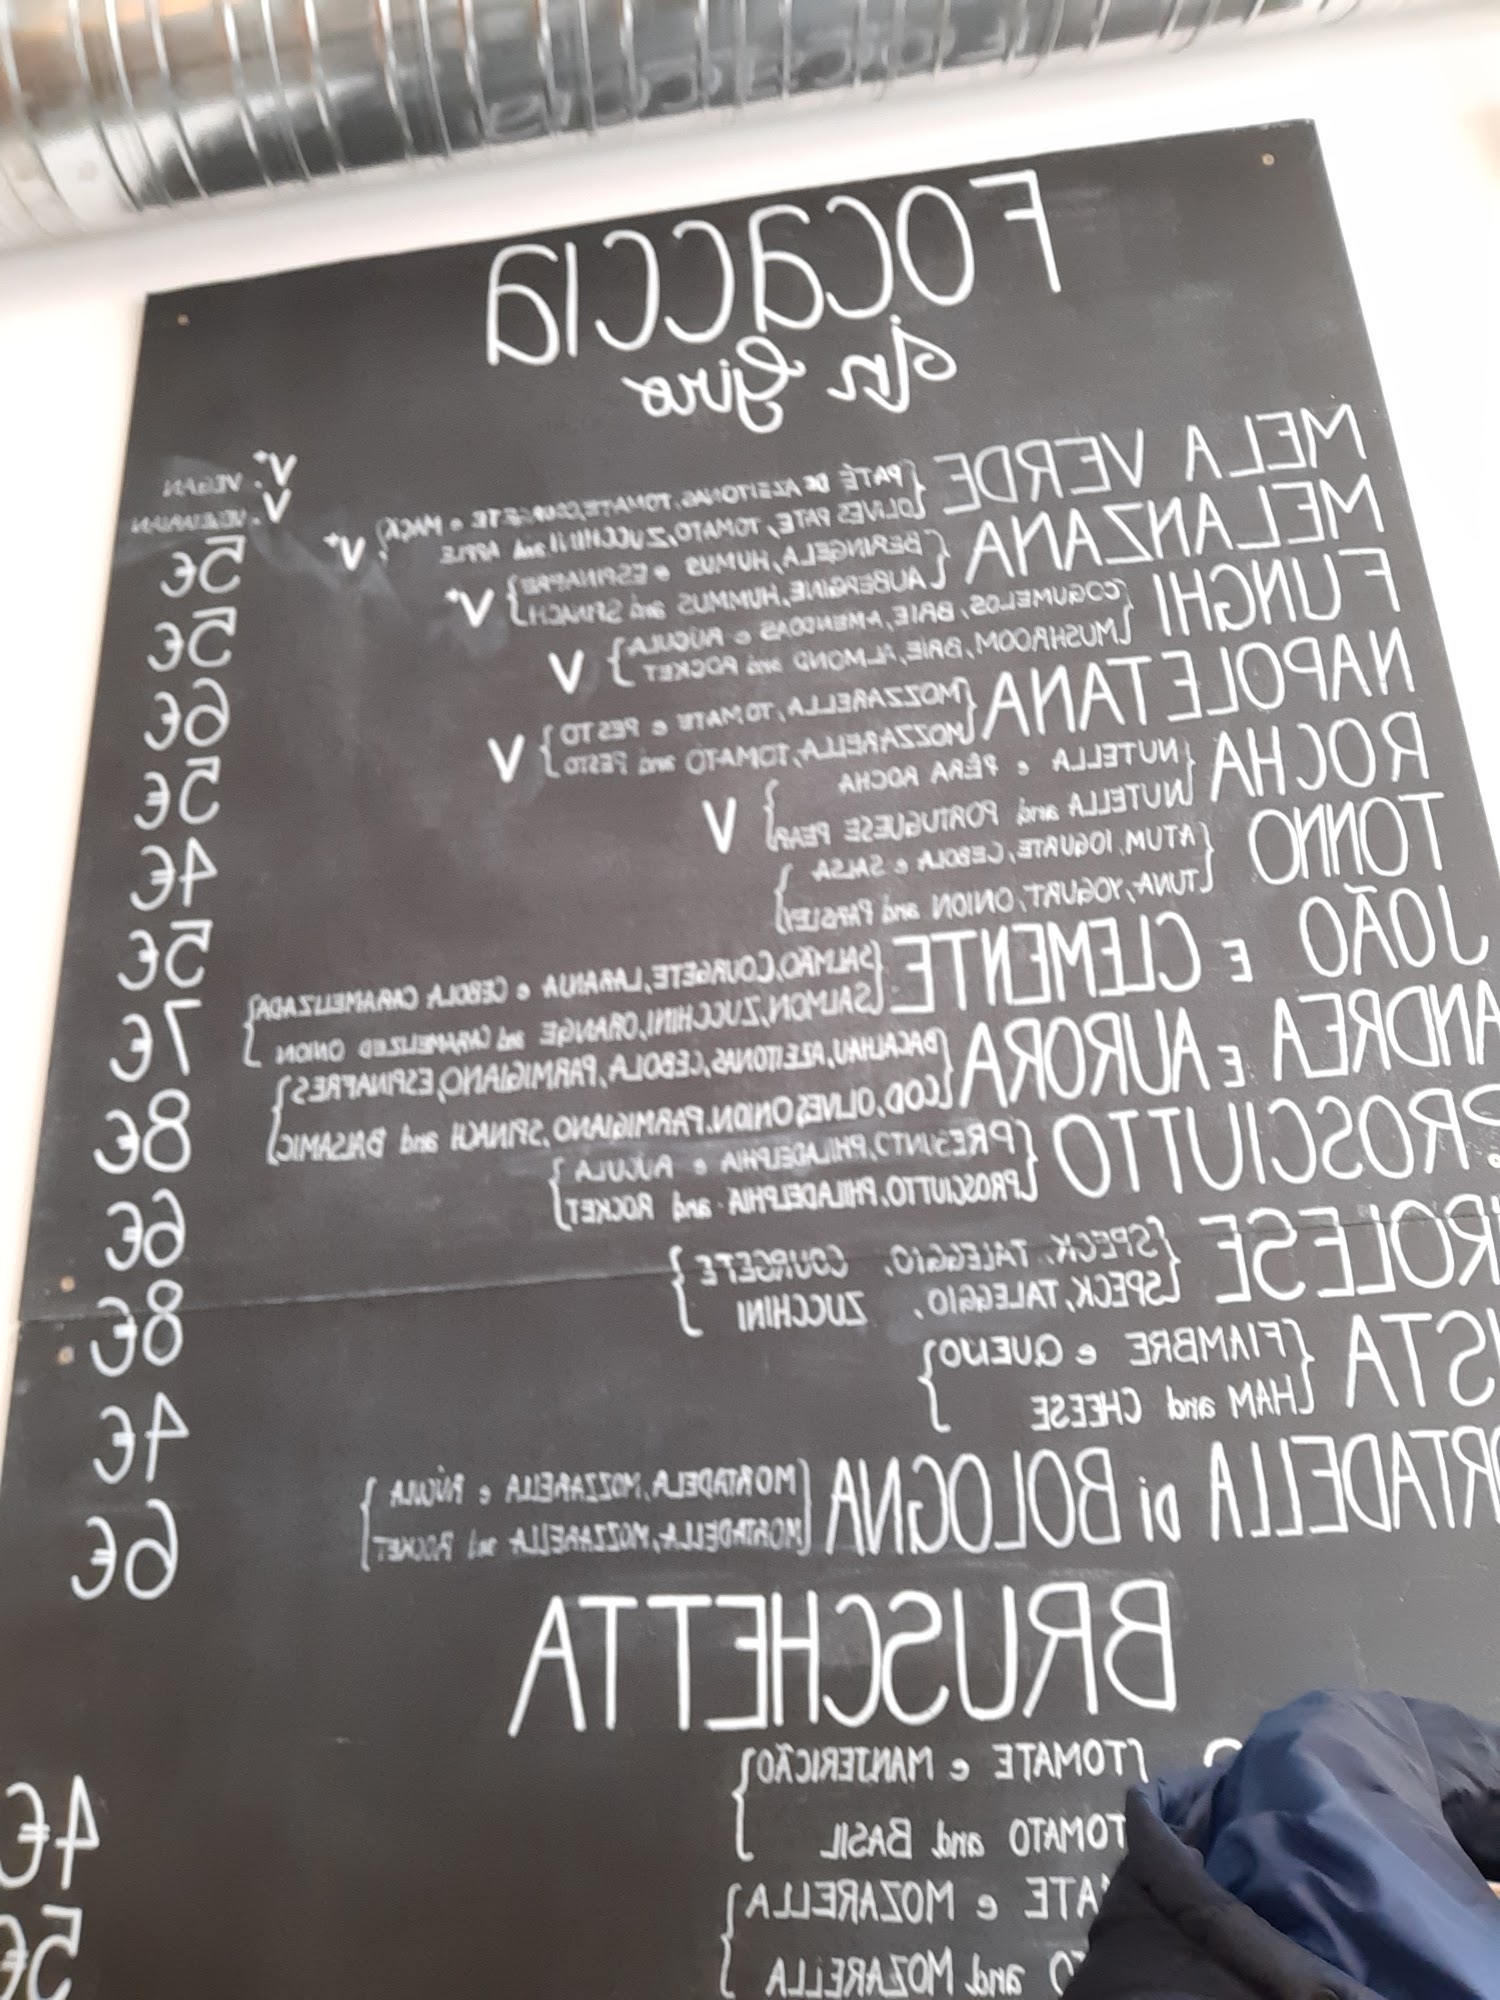 FOCACCIA
in Giro
V* - VEGAN
V - VEGETARIAN
MELA VERDE {PATÉ DE AZEITONAS, TOMATE, COURGETE e MAÇÃ} V* 5€
{OLIVES PATE, TOMATO, ZUCCHINI and APPLE
MELANZANA {BERINGELA, HUMUS e ESPINAFRE} V* 5€
{AUBERGINE, HUMMUS and SPINACH}
FUNGHI {COGUMELOS, BRIE, AMENDOAS e RÚCULA} V 6€
{MUSHROOM, BRIE, ALMOND and ROCKET}
NAPOLETANA {MOZZARELLA, TOMATE e PESTO} V 5€
{MOZZARELLA, TOMATO and PESTO}
ROCHA {NUTELLA e PÊRA ROCHA} V 4€
{NUTELLA and PORTUGUESE PEAR}
TONNO {ATUM, IOGURTE, CEBOLA e SALSA} 5€
{TUNA, YOGURT, ONION and PARSLEY}
JOÃO E CLEMENTE {SALMÃO, COURGETE, LARANJA e CEBOLA CARAMELIZADA} 7€
{SALMON, ZUCCHINI, ORANGE and CARAMELIZED ONION}
ANDREA E AURORA {BACALHAU, AZEITONAS, CEBOLA, PARMIGIANO, ESPINAFRES} 8€
{COD, OLIVES, ONION, PARMIGIANO, SPINACH and BALSAMIC}
PROSCIUTTO {PRESUNTO, PHILADELPHIA e RÚCULA} 6€
{PROSCIUTTO, PHILADELPHIA and ROCKET}
ROLESE {SPECK, TALEGGIO, COURGETE} 8€
{SPECK, TALEGGIO, ZUCCHINI}
STA {FIAMBRE e QUEIJO} 4€
{HAM and CHEESE}
RTADELLA Di BOLOGNA {MORTADELA, MOZZARELLA e RÚCULA} 6€
{MORTADELLA, MOZZARELLA and ROCKET}
BRUSCHETTA
{TOMATE e MANJERICÃO} 4€
TOMATO and BASIL}
ATE e MOZARELLA} 5€
TO and MOZARELLA}